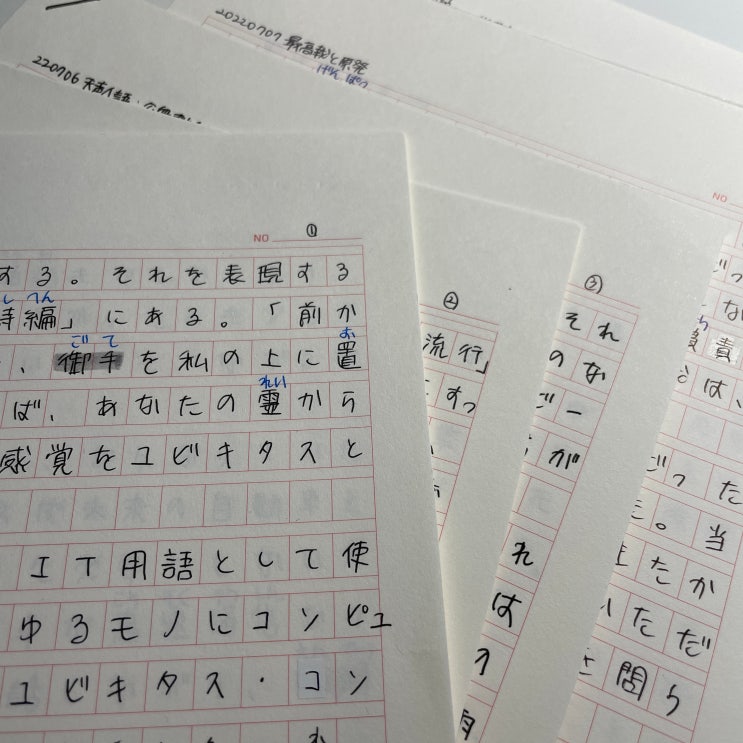 20220707 最高裁と原発
げんぱつ
220706 天声人語
NO ①
する。それを表現する
しへん
詩編」にある。「前か
ごて お
、御手を私の上に置
れい
ば、あなたの霊から
感覚をユビキタスと
IT用語として使
ゆるモノにコンピュ
ユビキタス・コン
②
流行」
すっ
③
それ
のな
ごー
が
れ
は
NO
ごっ
な
責
は、
どった
。当
たか
いただ
問ら